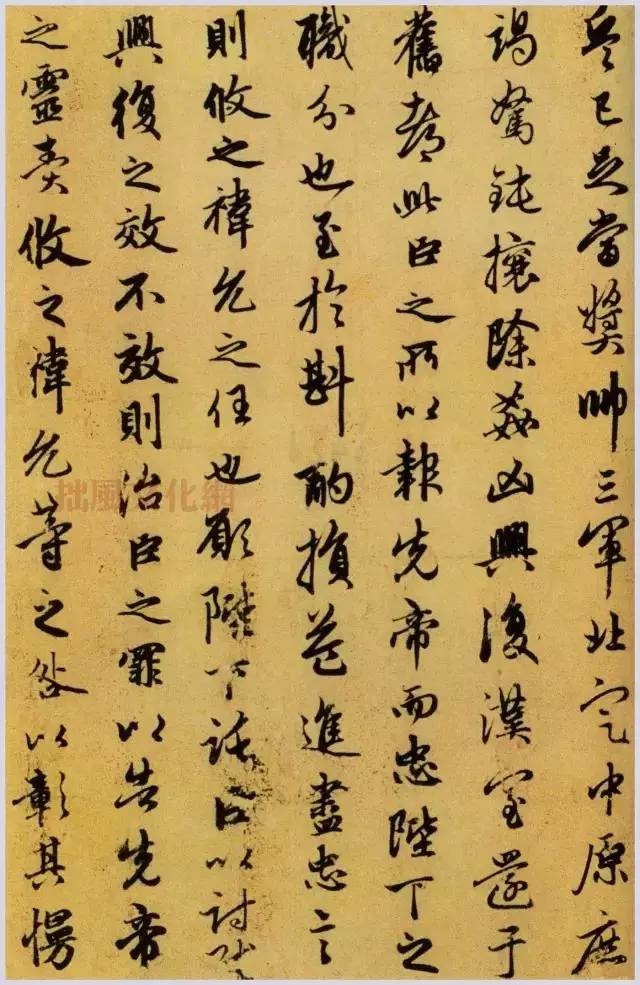 兵已足當獎帥三軍北定中原庶
竭駑鈍攘除姦凶興復漢室還于
舊都此臣之所以報先帝而忠陛下之
職分也至於斟酌損益進盡忠言
則攸之禕允之任也願陛下託臣以討賊
興復之效不效則治臣之罪以告先帝
之靈責攸之禕允等之咎以彰其慢
拙風文化網